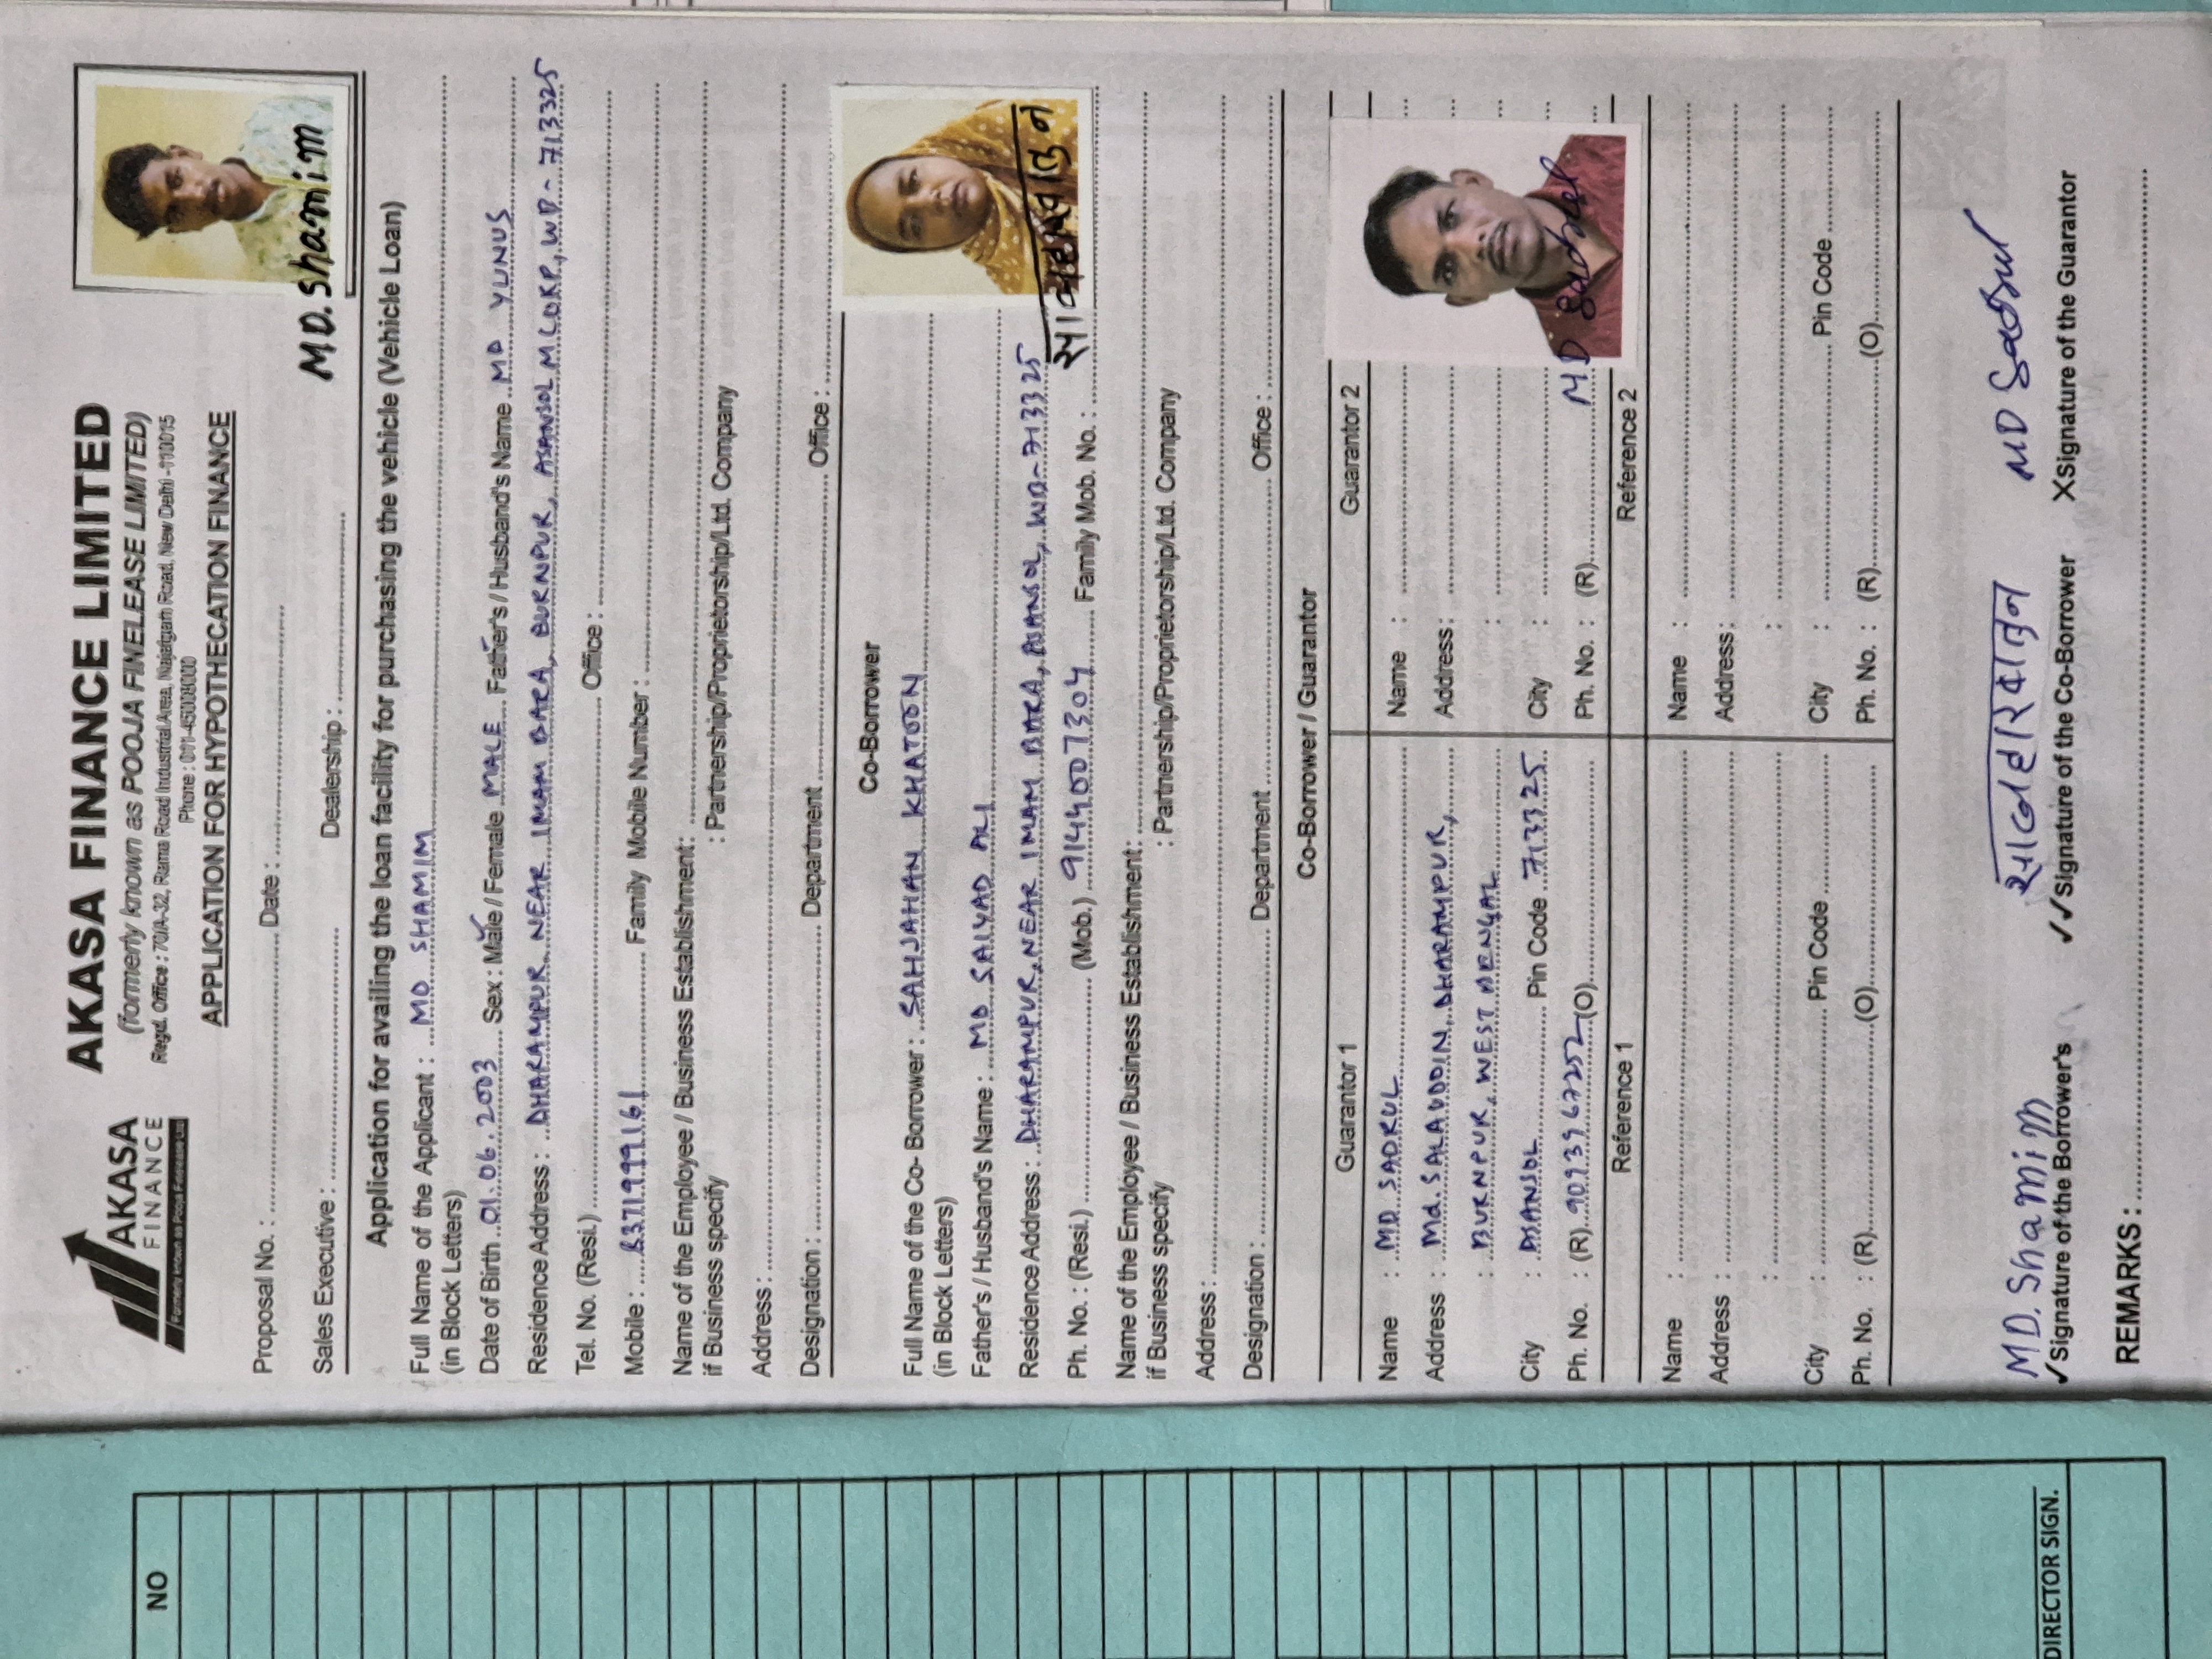 NO
AKASA
FINANCE
Formerly known as Pooja Finelease Ltd
AKASA FINANCE LIMITED
(formerly known as POOJA FINELEASE LIMITED)
Regd. Office : 70/A-32, Rama Road Industrial Area, Najafgarh Road, New Delhi -110015
Phone : 011-45008000
APPLICATION FOR HYPOTHECATION FINANCE
Proposal No. : Date :
MD. Shamim
Sales Executive : Dealership :
Application for availing the loan facility for purchasing the vehicle (Vehicle Loan)
Full Name of the Applicant : MD SHAMIM
(in Block Letters)
Date of Birth 01.06.2003 Sex : Male / Female MALE Father's / Husband's Name MD YUNUS
Residence Address : DHARAMPUR, NEAR IMAM BARA, BURNPUR, ASANSOL M CORP, WB - 713325
Tel. No. (Resi.) Office :
Mobile : 8371999161 Family Mobile Number :
Name of the Employee / Business Establishment:
if Business specify : Partnership/Proprietorship/Ltd. Company
Address :
Designation : Department Office :
Co-Borrower
Full Name of the Co- Borrower : SAHJAHAN KHATOON
(in Block Letters)
Father's / Husband's Name : MD SAIYAD ALI
Residence Address : DHARAMPUR, NEAR IMAM BARA, ASANSOL, WB-713325
Ph. No. : (Resi.) (Mob.) 9144007304 Family Mob. No. :
Name of the Employee / Business Establishment:
if Business specify : Partnership/Proprietorship/Ltd. Company
Address :
Designation : Department Office :
Co-Borrower / Guarantor
Guarantor 1 Guarantor 2
Name : MD SADRUL Name :
Address : Md. SALAUDDIN, DHARAMPUR, Address :
: BURNPUR, WEST BENGAL :
City : ASANSOL Pin Code 713325 City :
Ph. No. : (R) 9093967252 (O) Ph. No. : (R) MD Sadrul
Reference 1 Reference 2
Name : Name :
Address : Address :
: :
City : Pin Code City : Pin Code
Ph. No. : (R) (O) Ph. No. : (R) (O)
MD. Shamim MD Sadrul
✓Signature of the Borrower's ✓✓Signature of the Co-Borrower XSignature of the Guarantor
DIRECTOR SIGN.
REMARKS :